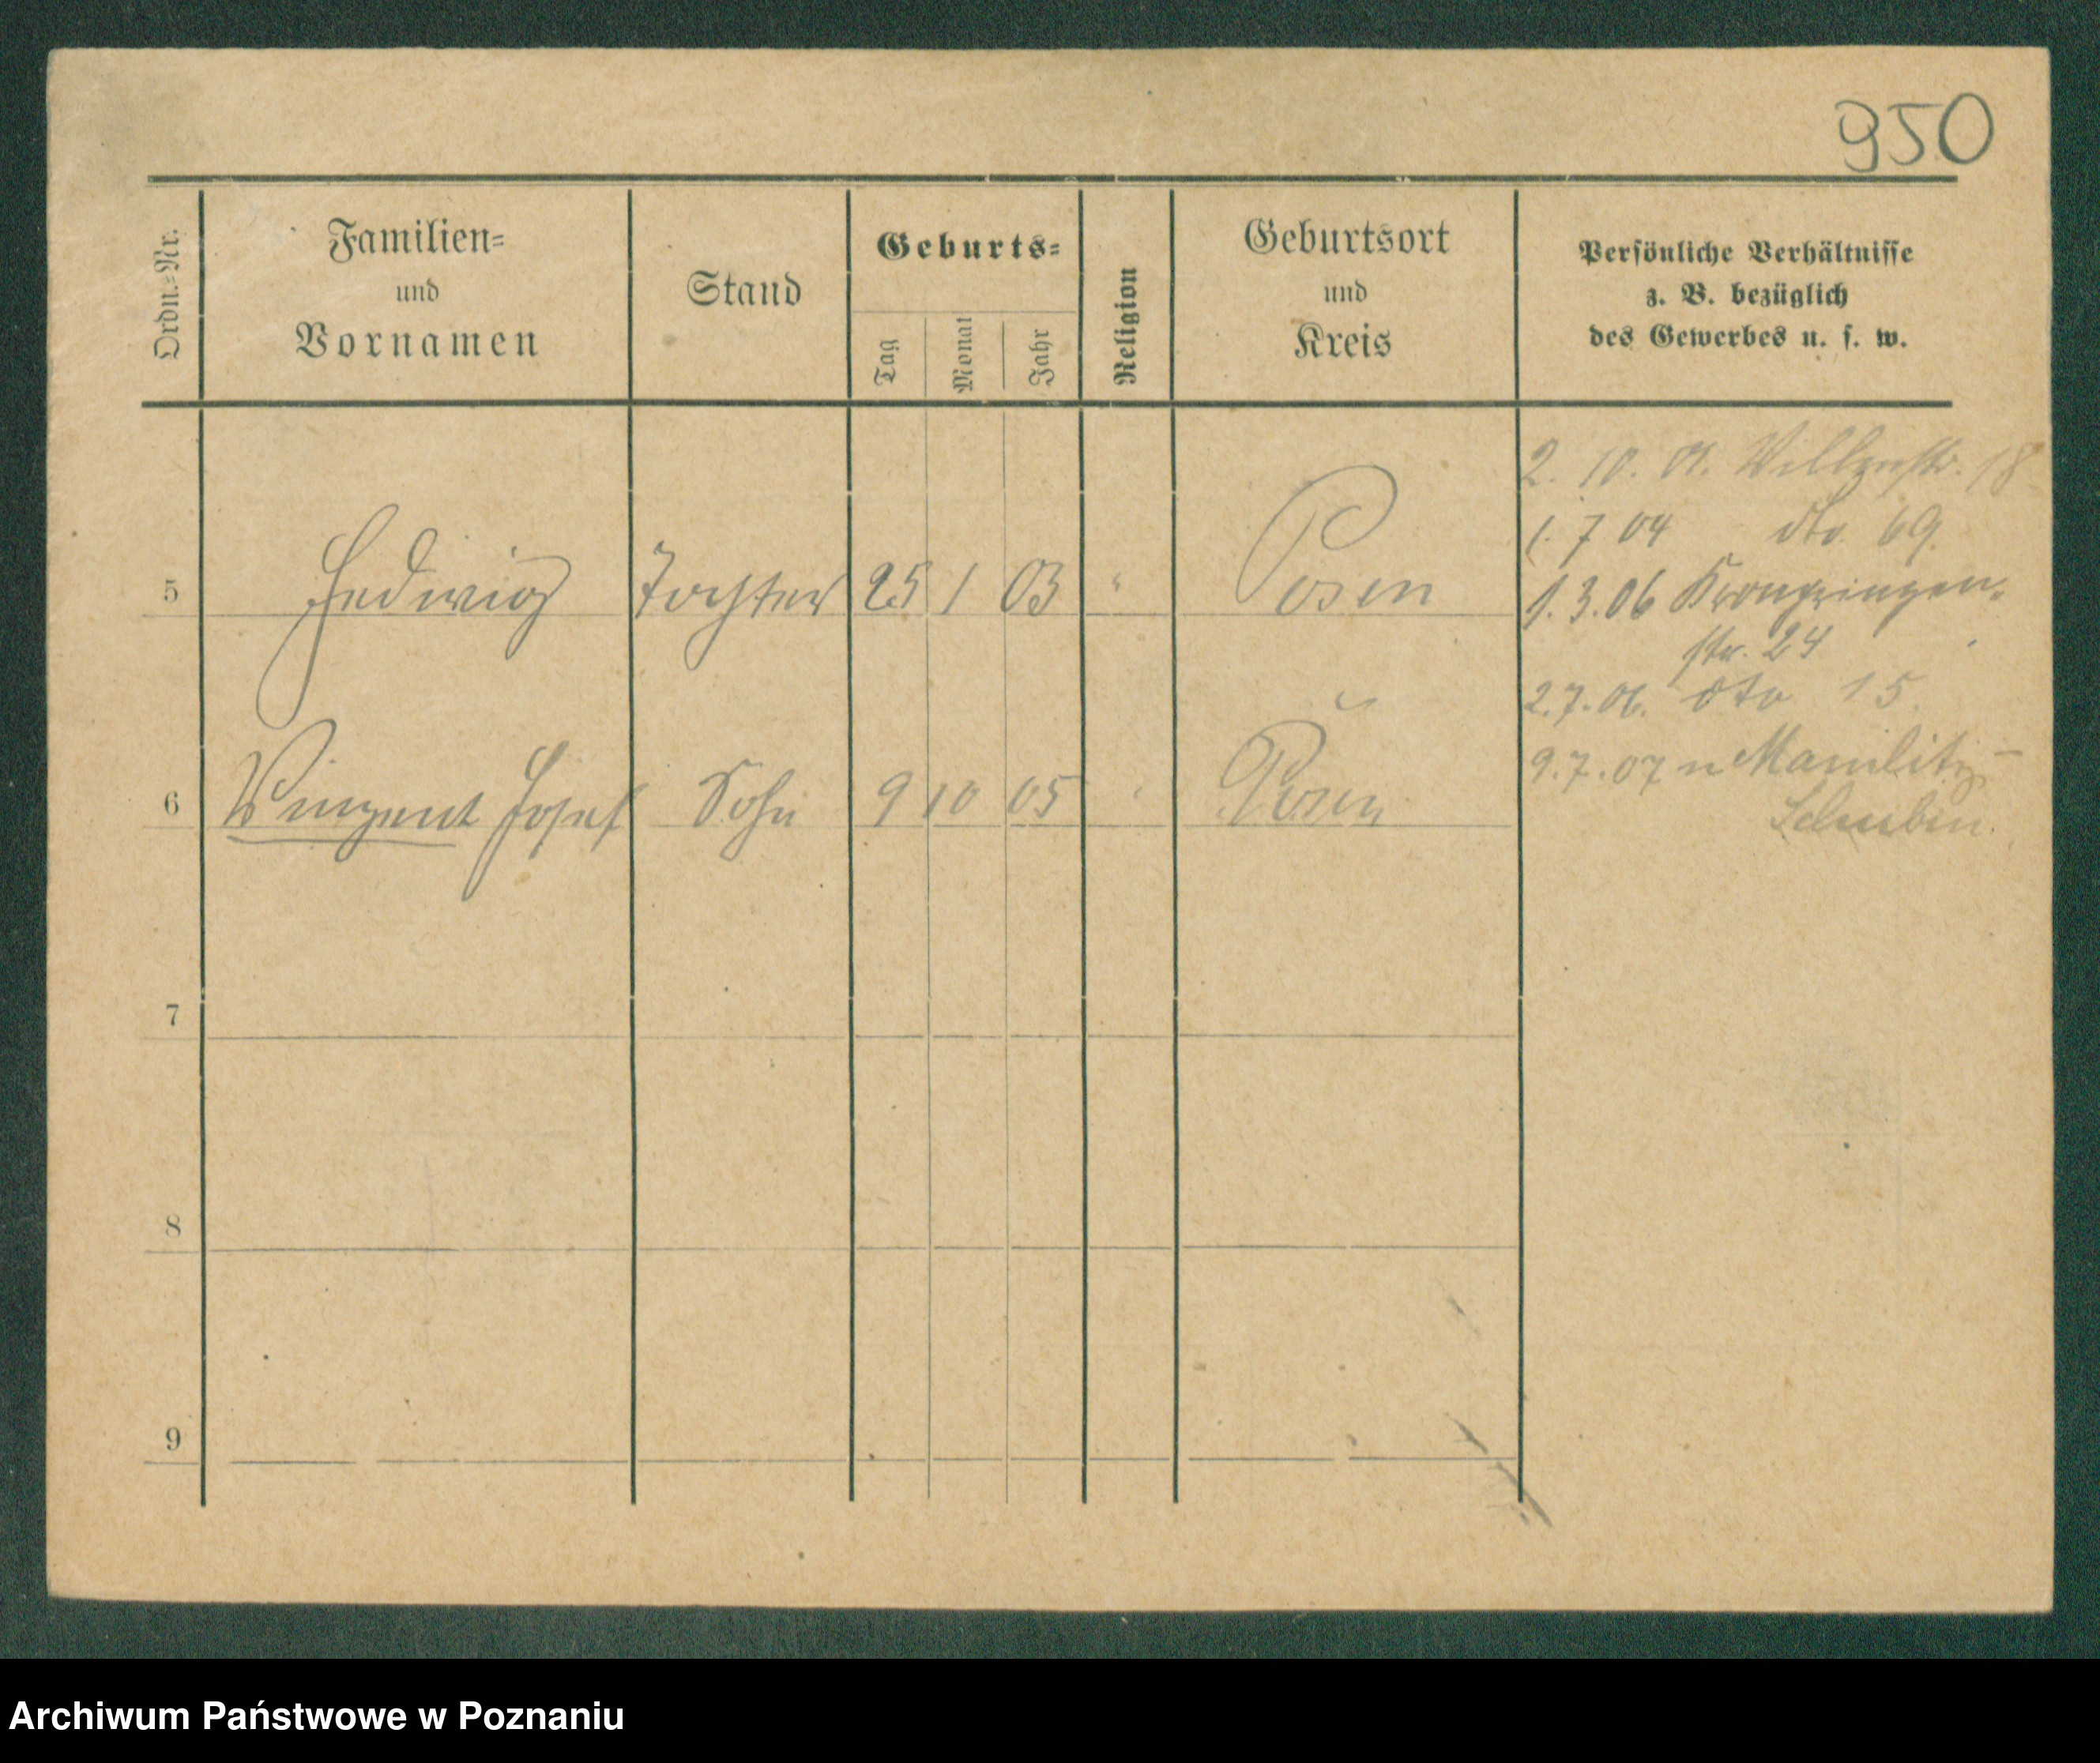 950
Ordn.=Nr.
Familien=
und
Vornamen
Stand
Geburts=
Tag
Monat
Jahr
Religion
Geburtsort
und
Kreis
Persönliche Verhältnisse
z. B. bezüglich
des Gewerbes u. s. w.
2. 10. 01. 18
1. 7 04 dto. 69.
5 Hedwig Tochter 25 1 03 " Posen
1.3.06 Kronprinzen-
str. 24
2.7.06. dto 15.
9.7.07 n Mamlitz -
Schubin.
6 Vinzent Josef Sohn 9 10 05 Posen
7
8
9
Archiwum Państwowe w Poznaniu